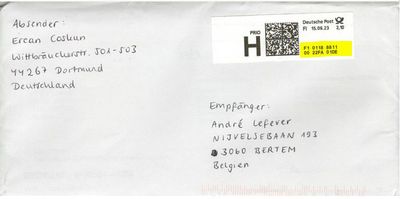 Absender:
Ercan Coskun
Wittbräuckerstr. 501-503
44267 Dortmund
Deutschland
Deutsche Post
PRIO
FI 15.06.23 2,10
H
F1 0118 8811
00 22FA 01DE
Empfänger:
André Lefever
NIJVELSEBAAN 193
3060 BERTEM
Belgien